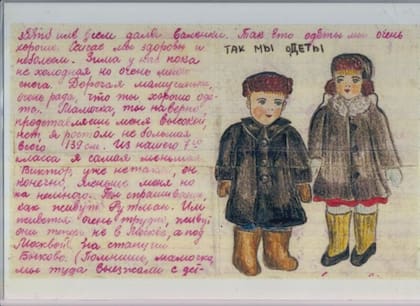 нам всем дали валенки. Так что одеты мы очень
хорошо. Сейчас мы здоровы и
не болеем. Зима у нас пока
не холодная но очень много
снега. Дорогая мамусинька,
очень рада, что ты хорошо оде-
та. Мамочка, ты наверно
представляешь меня высокой
нет я ростом не большая
всего 139 см. Из нашего 7го
класса я самая меньшая.
Виктор, уже не такой, он
конечно, меньше меня но
на немного. Ты спрашиваешь,
как живут Им
живется очень трудно, живут
они теперь не в Москве, а под
Москвой на станции
Быково. (Помнишь, мамочка,
мы туда выезжали с дет-
ТАК МЫ ОДЕТЫ